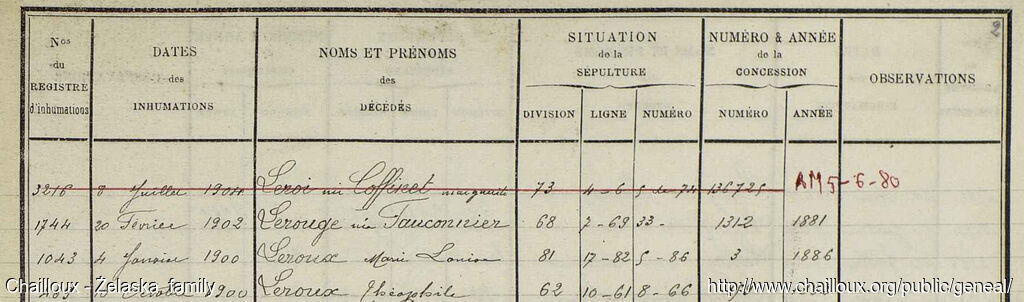 2
Nos du REGISTRE d'inhumations
DATES des INHUMATIONS
NOMS ET PRÉNOMS des DÉCÉDÉS
SITUATION de la SÉPULTURE
NUMÉRO & ANNÉE de la CONCESSION
OBSERVATIONS
DIVISION LIGNE NUMÉRO NUMÉRO ANNÉE
3216 8 Juillet 1904 Leroi née Coffinet marguerite 73 4-6 5 de 74 136725 AM 5-6-80
1744 20 Février 1902 Lerouge née Fauconnier 68 7-69 33- 1312 1881
1043 4 Janvier 1900 Leroux Marie Louise 81 17-82 5-86 3 1886
1900 Leroux Théophile 62 10-61 8-66
Chailloux - Żelaska family
http://www.chailloux.org/public/geneal/